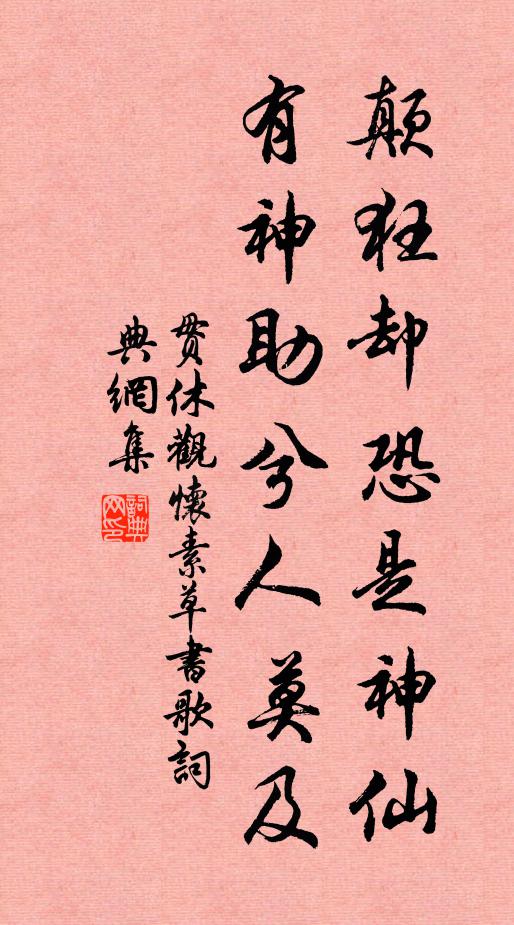 颠狂却恐是神仙
有神助兮人莫及
贯休觀懷素草書歌詞
典網集
詞典
网印